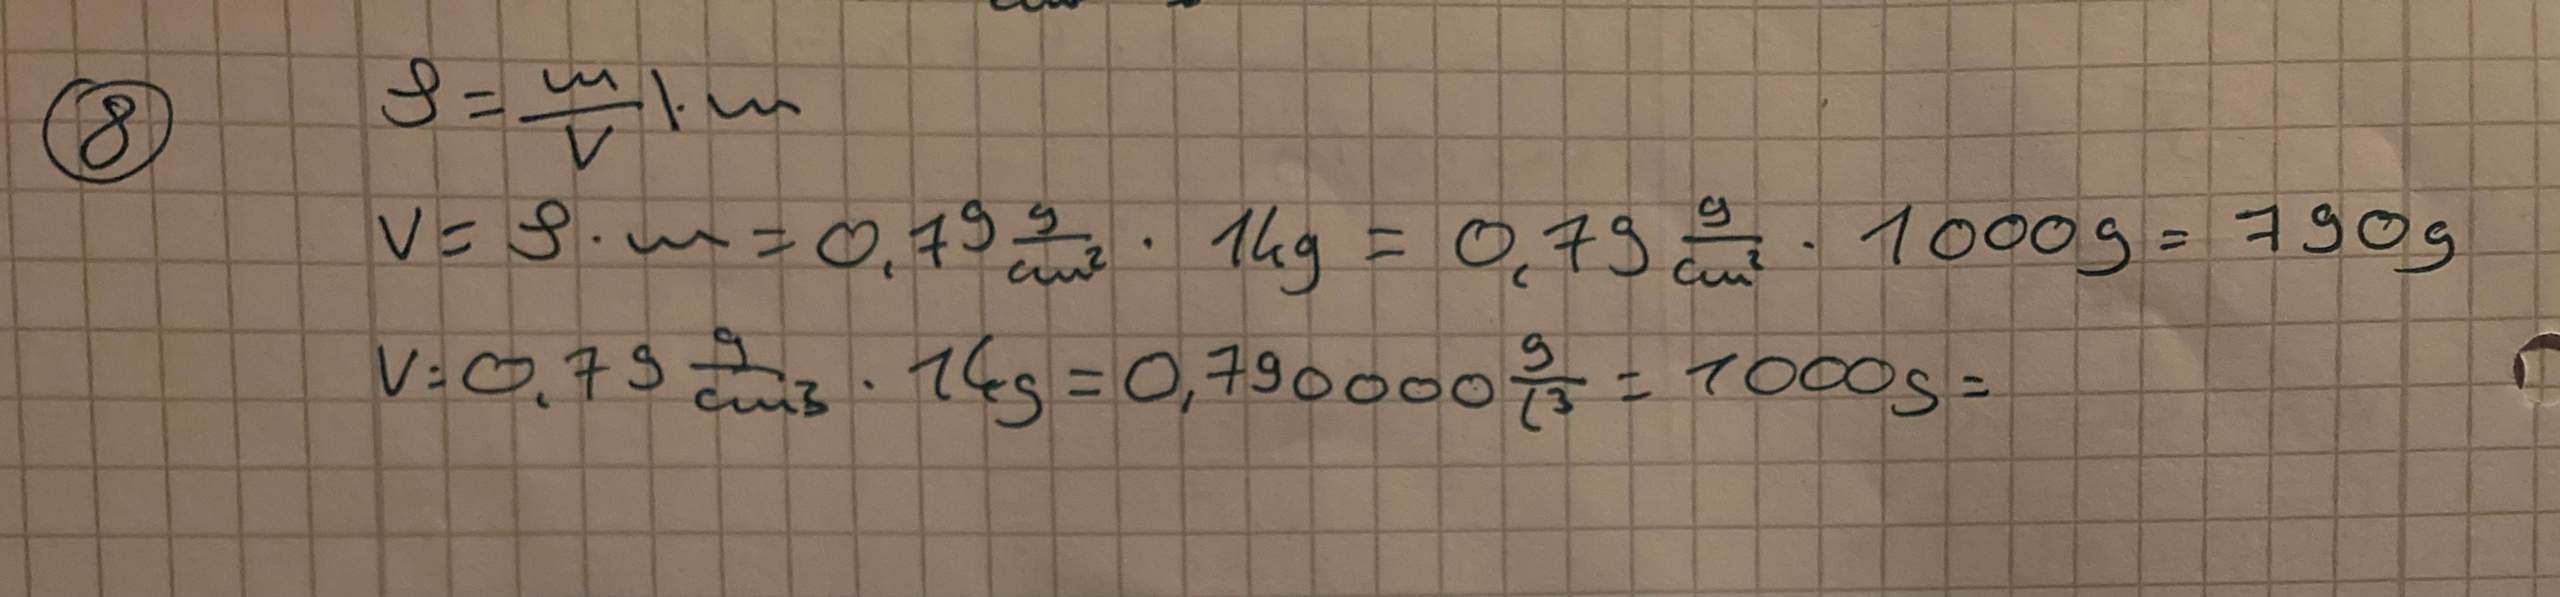 ⑧ ρ = m/V |· m
V = ρ · m = 0,79 g/cm² · 1kg = 0,79 g/cm² · 1000g = 790g
V = 0,79 g/cm³ · 1kg = 0,790000 g/l³ = 1000g =